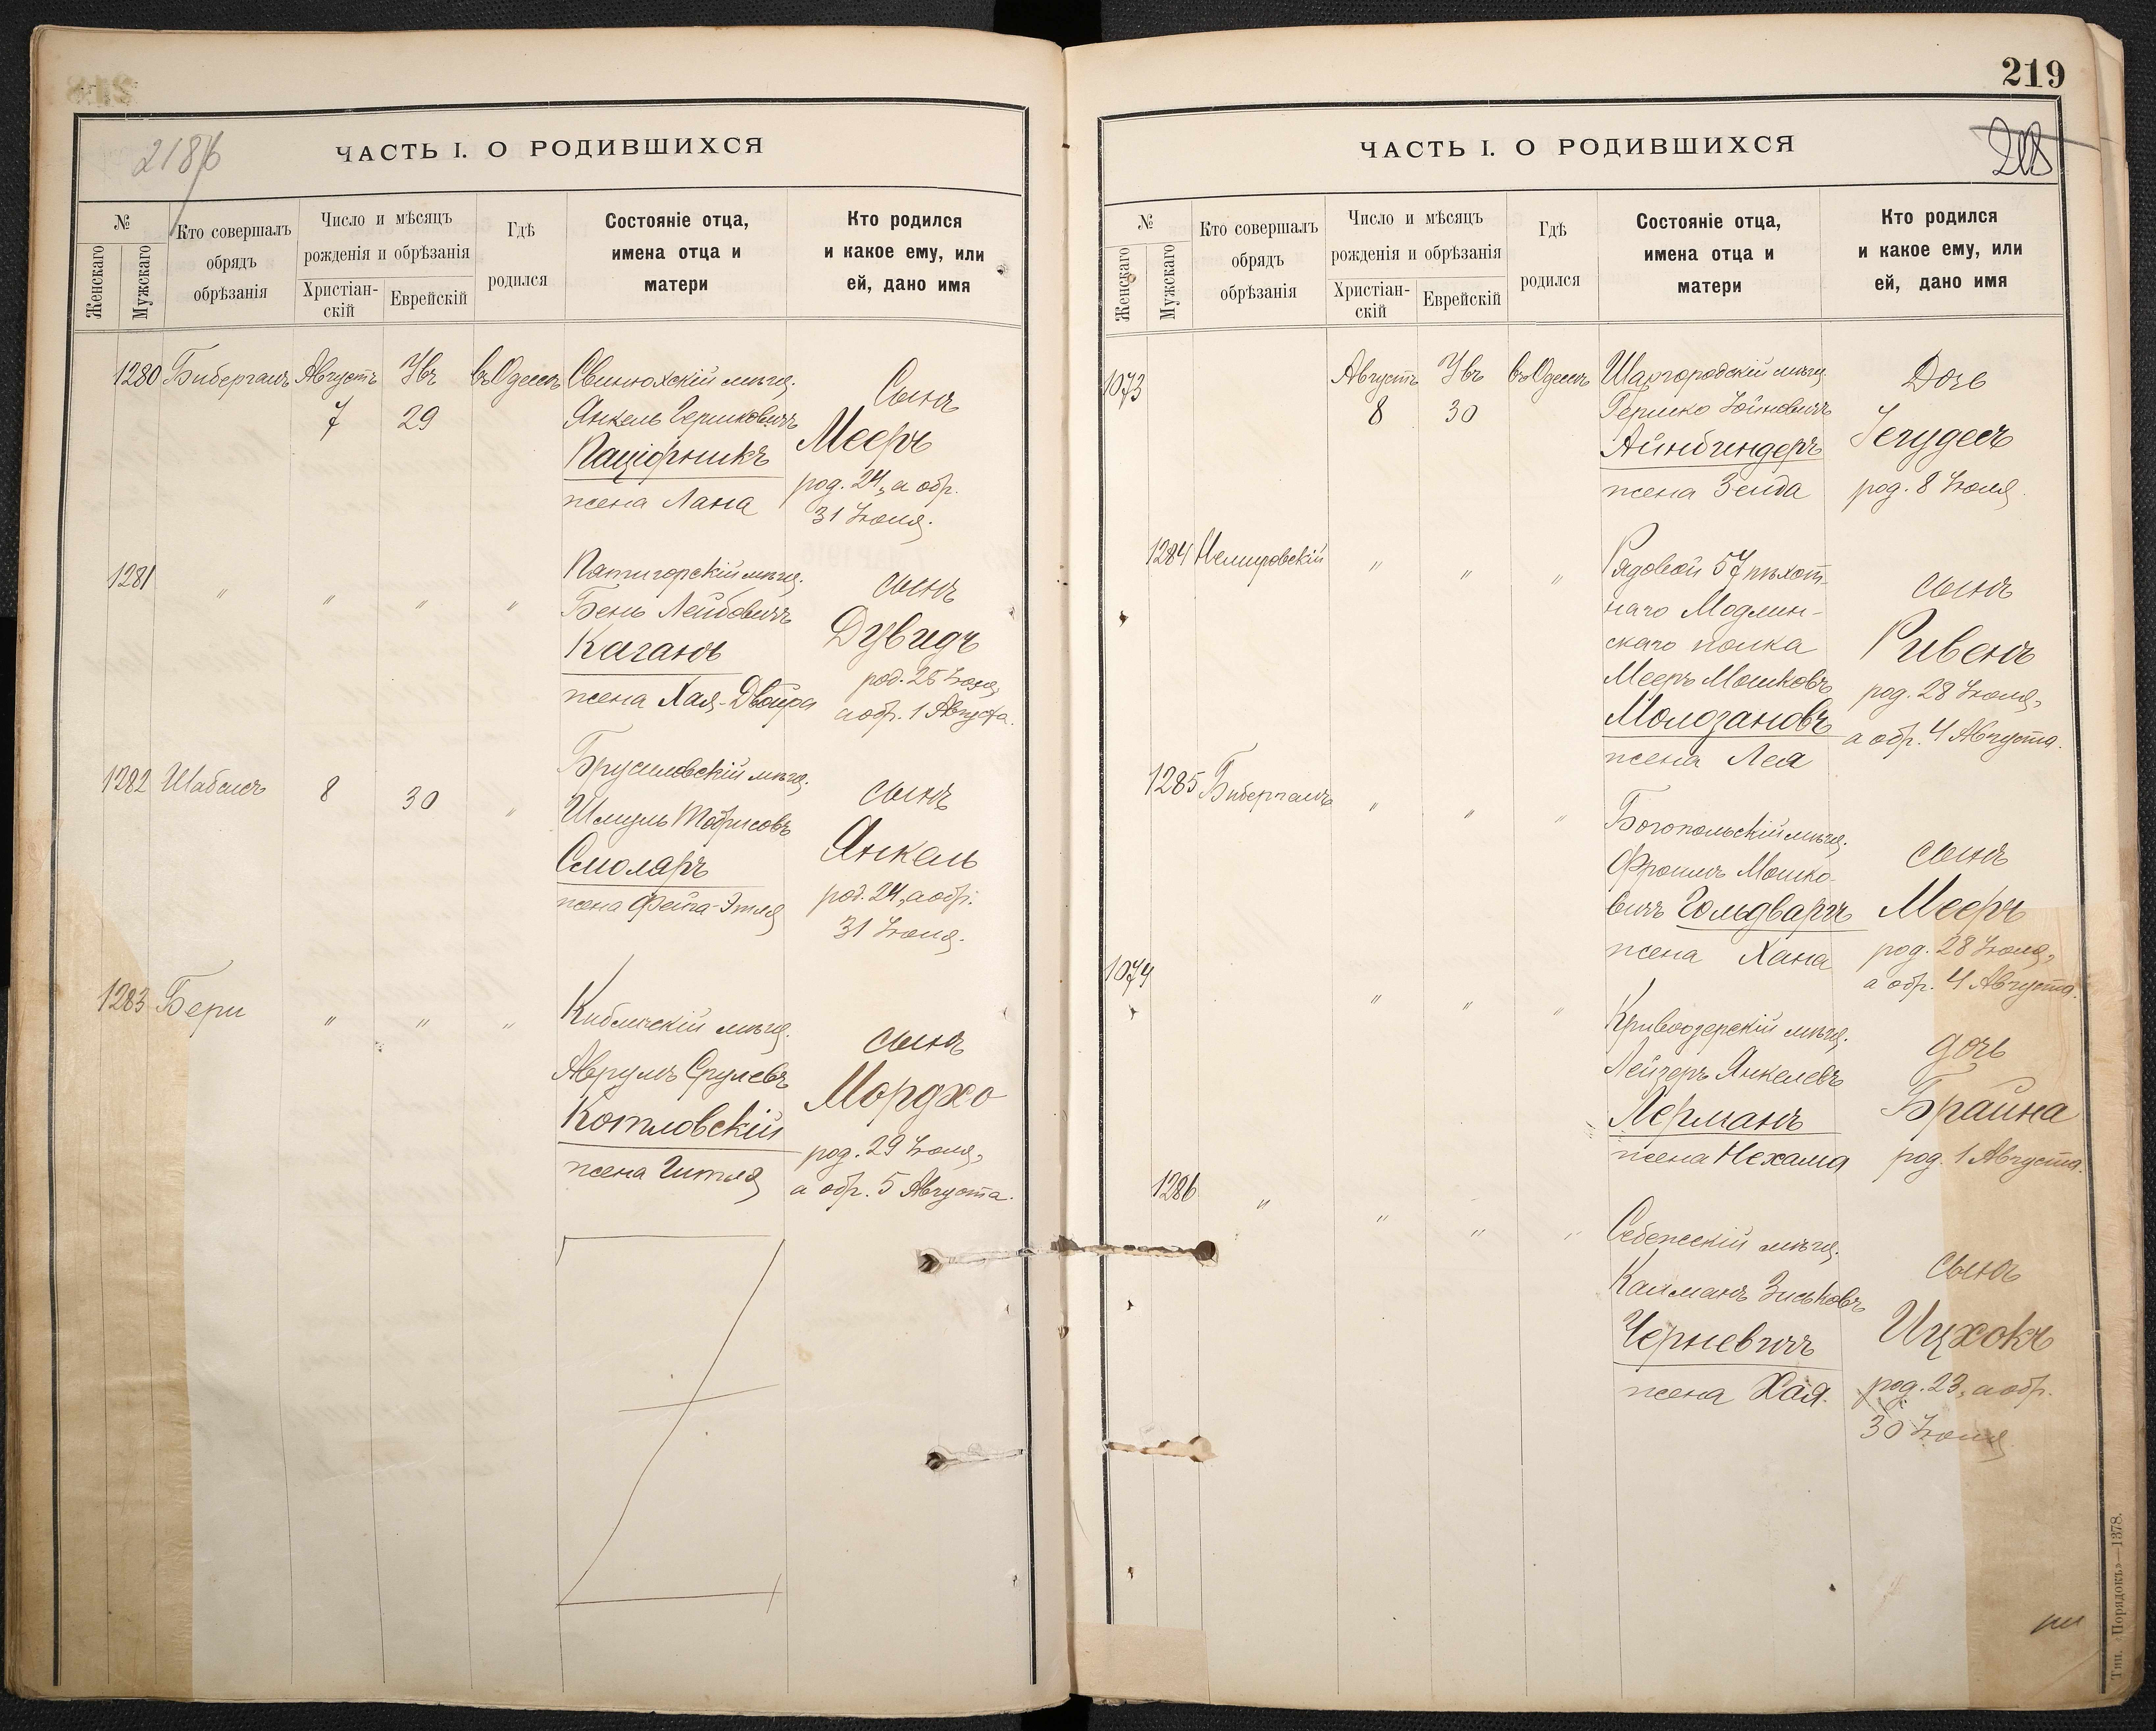 218
ЧАСТЬ I. О РОДИВШИХСЯ
№
Женскаго
Мужскаго
Кто совершалъ
обрядъ
обрѣзанія
Число и мѣсяцъ
рожденія и обрѣзанія
Христіан-
скій
Еврейскій
Гдѣ
родился
Состояніе отца,
имена отца и
матери
Кто родился
и какое ему, или
ей, дано имя
1280 Бибергалъ Августъ Увъ въ Одессѣ Свинюхскій мѣщ. Сынъ
7 29 Янкель Гершковичъ Мееръ
Паціорникъ род. 24, а обр.
жена Хана 31 Іюля.
1281 " " " " Пятигорскій мѣщ. сынъ
Бень Лейбовичъ Дувидъ
Каганъ род. 25 Іюля,
жена Хая-Двойра а обр. 1 Августа.
1282 Шабсисъ 8 30 " Брусиловскій мѣщ. сынъ
Шмуль Янкель
Смоляръ род. 24, а обр.
жена Фейга-Этля 31 Іюля.
1283 Бери " " " Кибличскій мѣщ. сынъ
Аврумъ Срулевъ Мордхо
Котловскій род. 29 Іюля,
жена Гитля а обр. 5 Августа.
219
ЧАСТЬ I. О РОДИВШИХСЯ
№
Женскаго
Мужскаго
Кто совершалъ
обрядъ
обрѣзанія
Число и мѣсяцъ
рожденія и обрѣзанія
Христіан-
скій
Еврейскій
Гдѣ
родился
Состояніе отца,
имена отца и
матери
Кто родился
и какое ему, или
ей, дано имя
1073 Августъ Увъ въ Одессѣ Шаргородскій мѣщ. Дочь
8 30 Гершко Іойновичъ Іегудесъ
Айнбиндеръ род. 8 Іюля.
жена Зельда
1284 Немировскій " " " Рядовой 57 пѣхот- сынъ
наго Модлин-
скаго полка Ривенъ
Мееръ Мошковъ род. 28 Іюля,
Молдановъ а обр. 4 Августа.
жена Лея
1285 Бибергалъ " " " Богопольскій мѣщ. сынъ
Фроимъ Мошко-
вичъ Голдваргъ Мееръ
жена Хана род. 28 Іюля,
а обр. 4 Августа.
1074 " " " Кривоозерскій мѣщ. дочь
Лейзеръ Янкелевъ Брайна
Лерманъ род. 1 Августа.
жена Нехама
1286 " " " " Себежскій мѣщ. сынъ
Калманъ Зиськовъ Ицхокъ
Черневичъ род. 23, а обр.
жена Хая. 30 Іюля.
Тип. «Порядокъ»—1378.